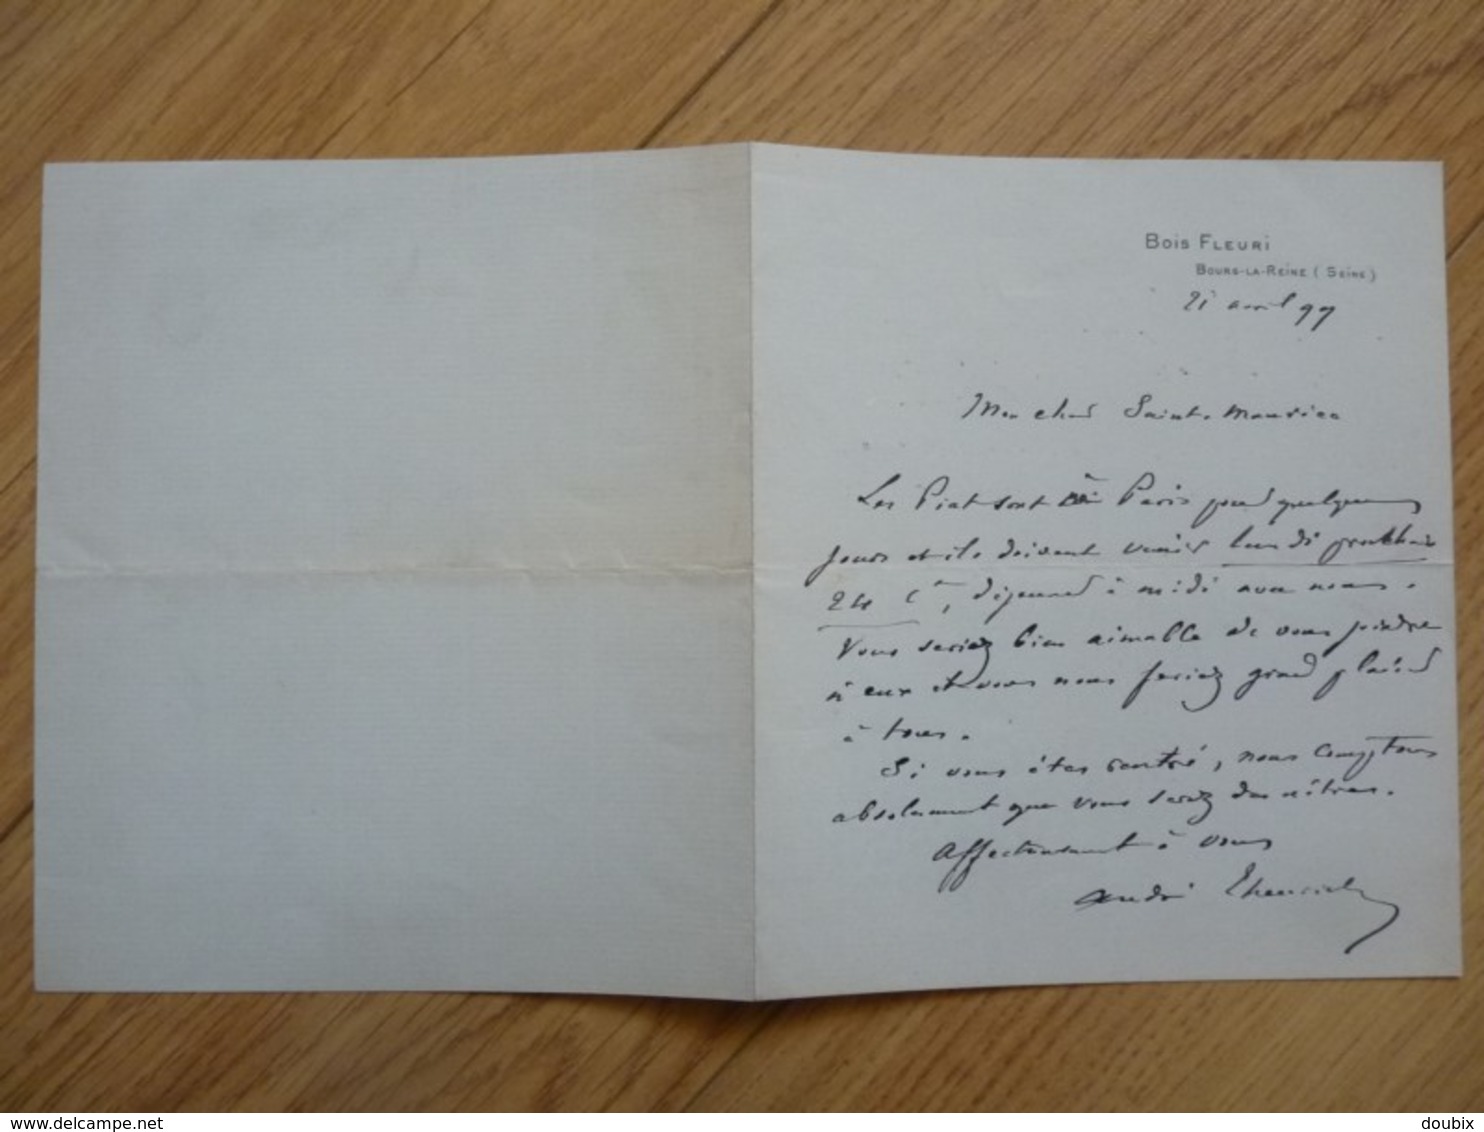 BOIS FLEURI
BOURG-LA-REINE (SEINE)
21 avril 99
Mon cher Saint-Maurice
Les Piat sont à Paris pour quelques
jours et ils doivent venir lundi prochain
24 Ct, déjeuner à midi avec nous.
Vous seriez bien aimable de vous joindre
à eux et vous nous feriez grand plaisir
à tous.
Si vous êtes rentré, nous comptons
absolument que vous serez des nôtres.
Affectueusement à vous
André Theuriet
delcampe.net
doubix